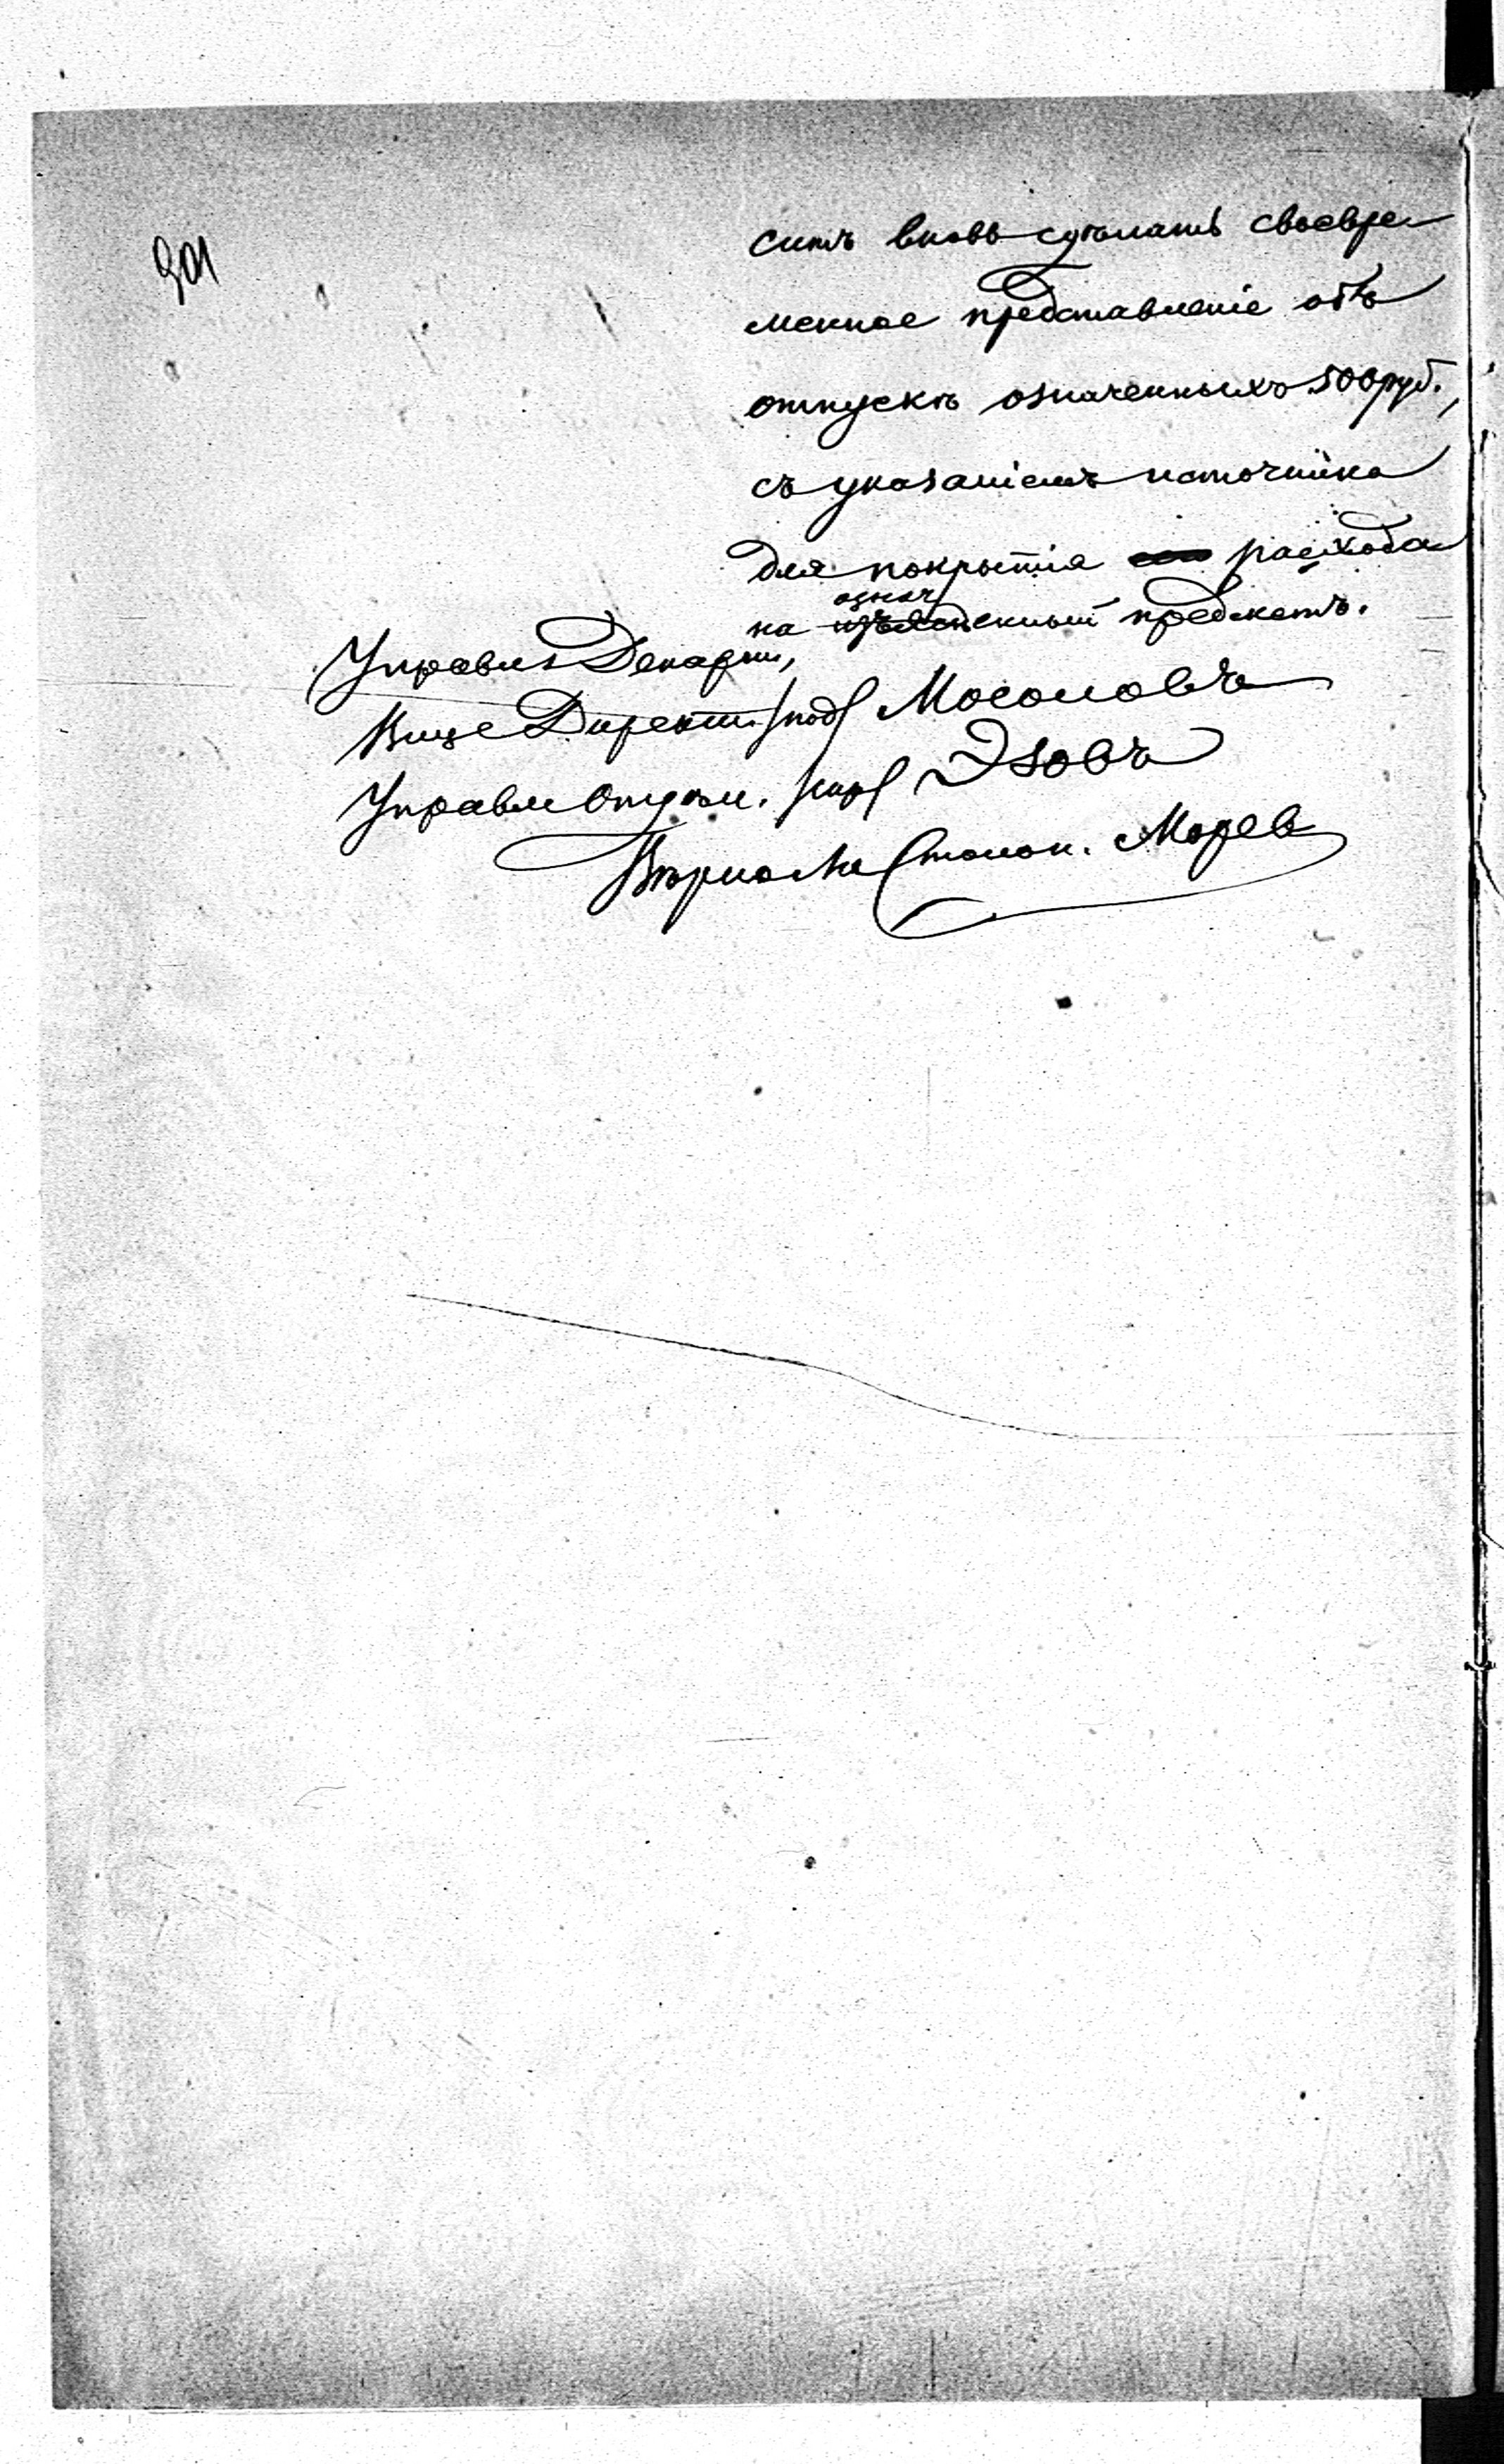 301
ситъ вновь сдѣлать своевре-
менное представленіе объ
отпускѣ означенныхъ 500 руб.,
съ указаніемъ источника
для покрытія расхода
означ
на изъясненный предметъ.
Управл. Департ.,
Вице Директ. /под/ Мосоловъ
Управл Отдѣл. /скр/ Эзовъ
Вѣрно: Столон. Морев